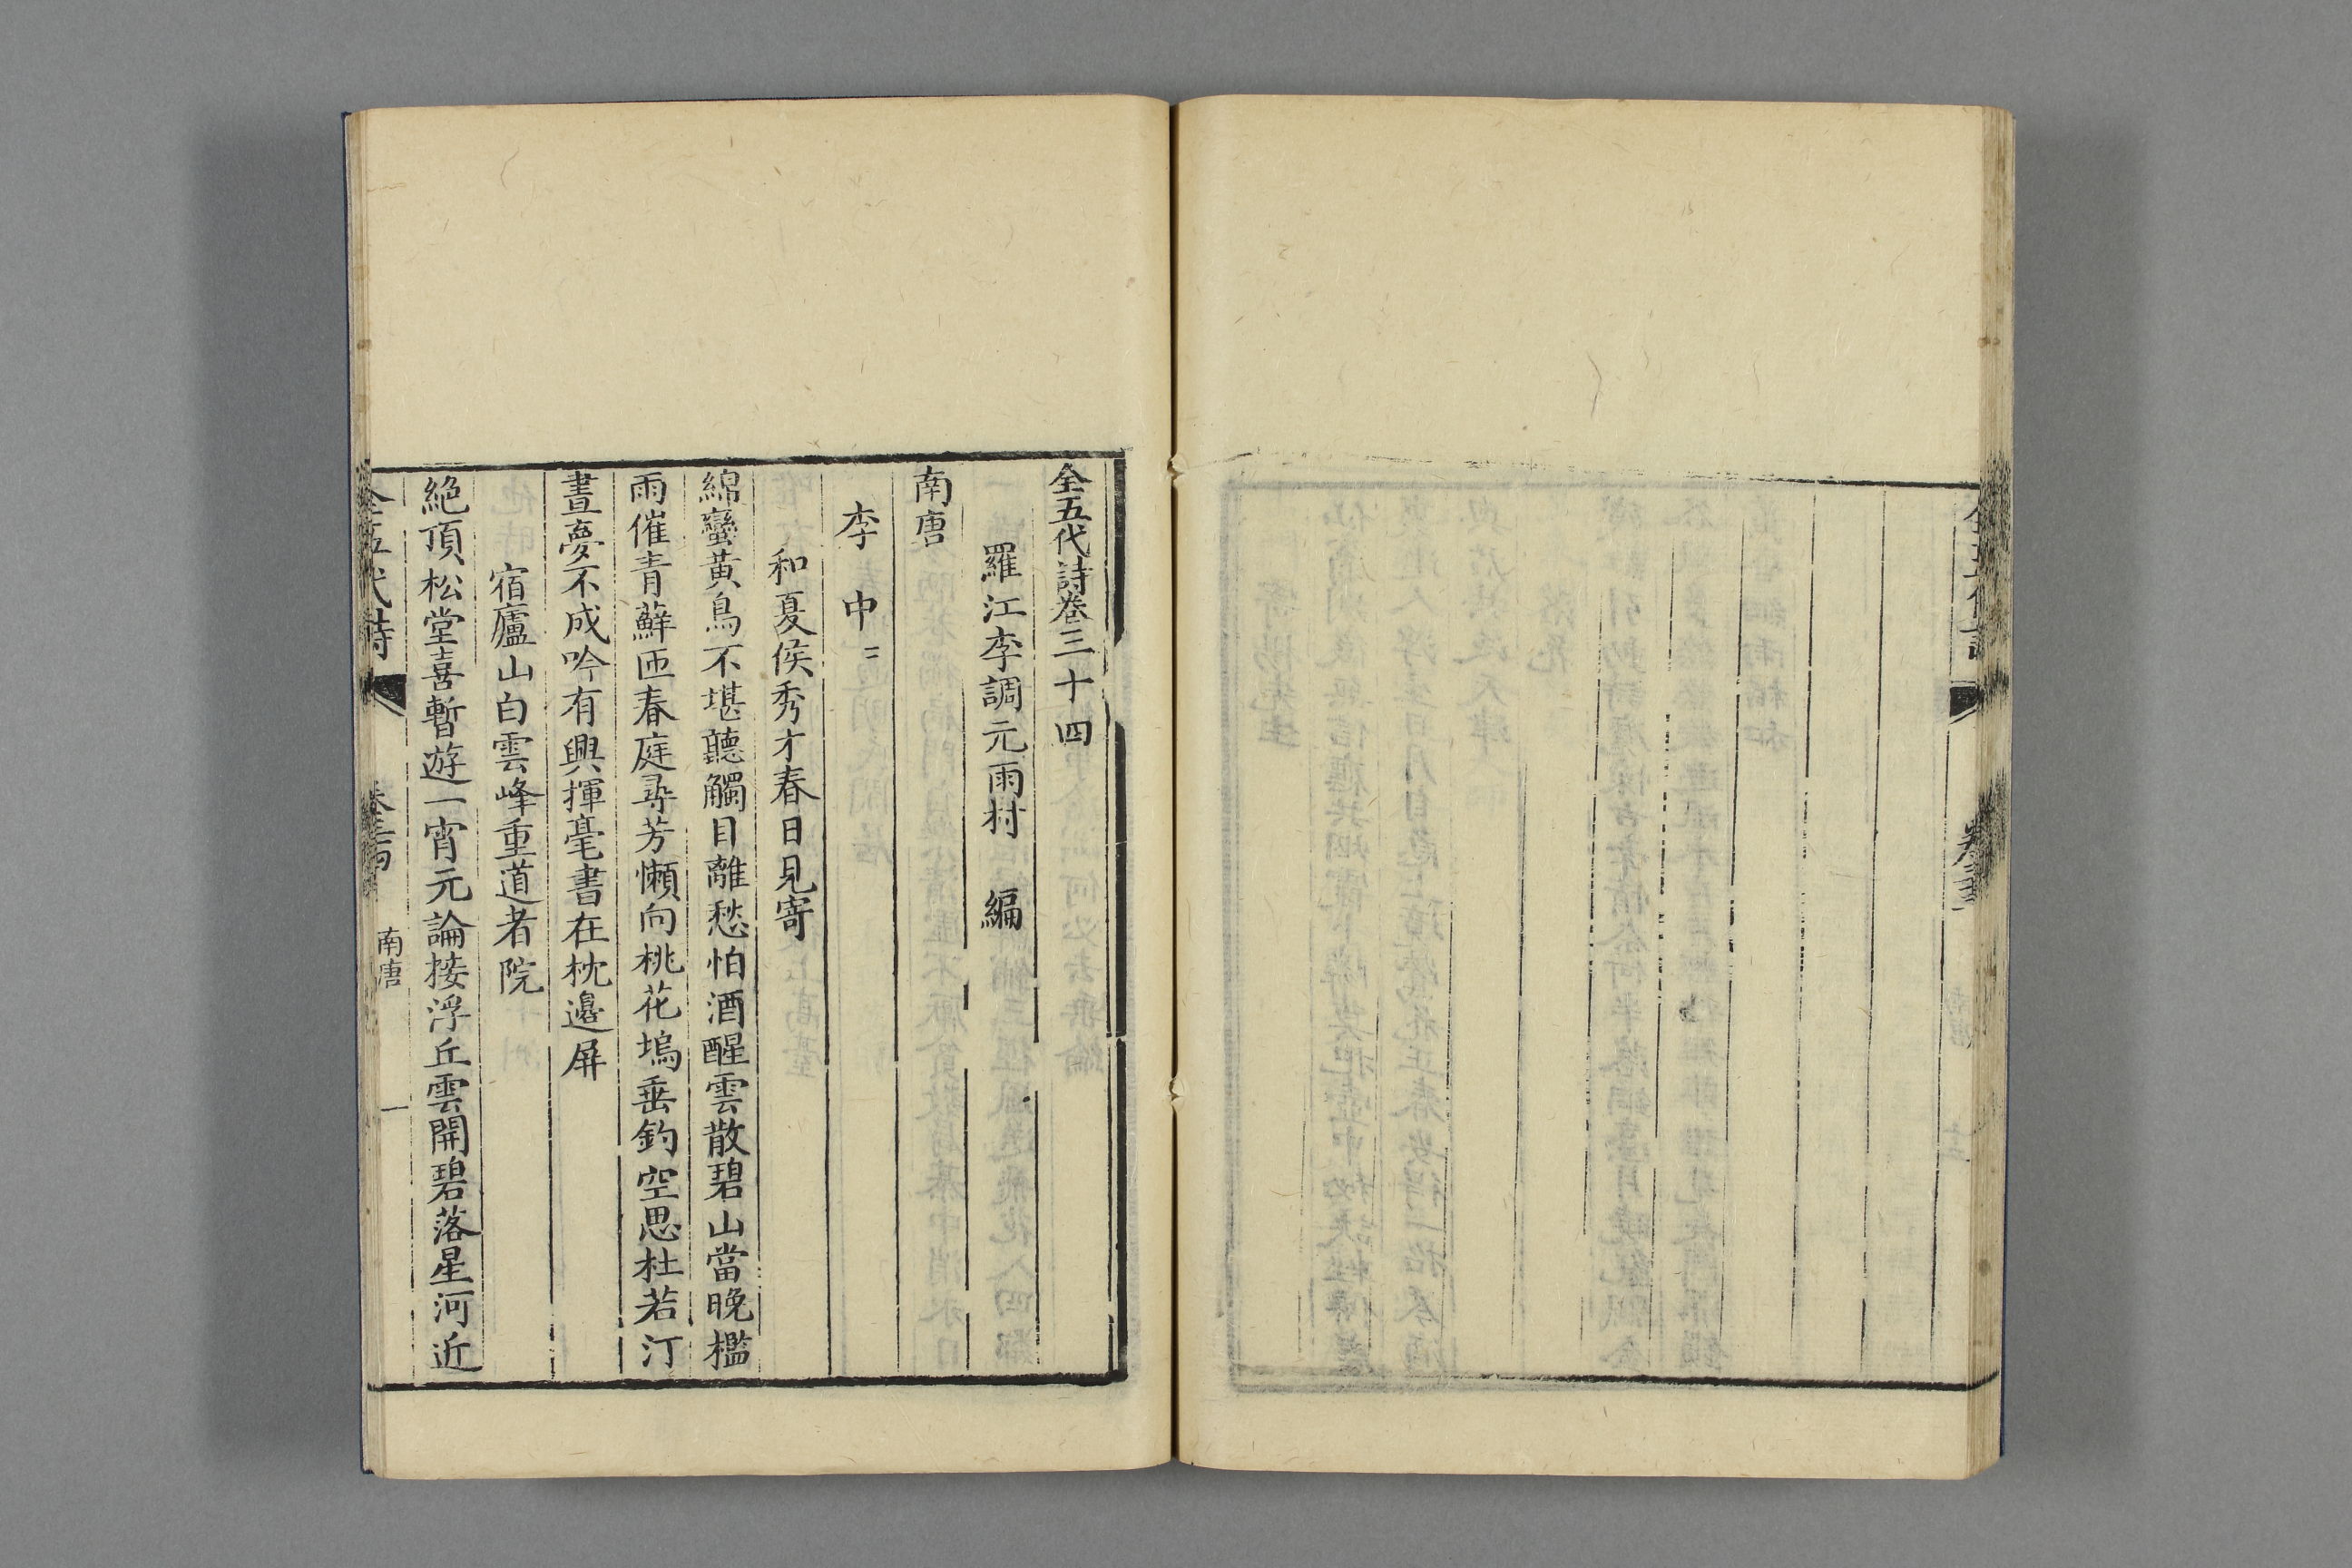 全五代詩卷三十四
羅江李調元雨村 編
南唐
李中二
和夏侯秀才春日見寄
綿蠻黃鳥不堪聽觸目離愁怕酒醒雲散碧山當晚檻
雨催青蘚匝春庭尋芳懶向桃花塢垂釣空思杜若汀
晝夢不成吟有興揮毫書在枕邊屏
宿廬山白雲峰重道者院
絕頂松堂喜暫遊一宵元論接浮丘雲開碧落星河近
全五代詩 卷三十四 南唐 一